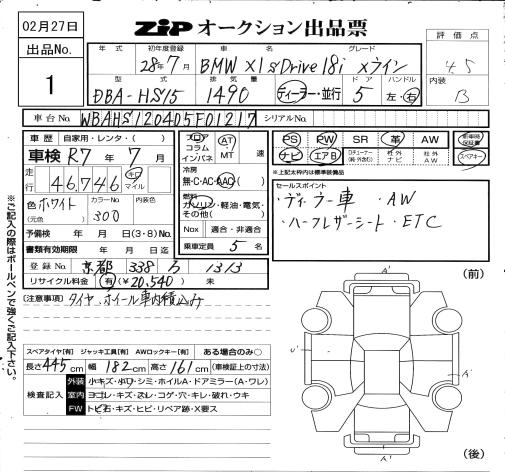 02月27日
ZIP オークション出品票
出品No.
1
年式 初年度登録 車名 グレード
28年7月 BMW X1 sDrive 18i xライン
型式 排気量 ドア ハンドル
DBA-HS15 1490 ディーラー・並行 5 左・右
評価点
4.5
内装
B
車台No. WBAHS120405F01217 シリアルNo.
車歴 自家用・レンタ・( )
車検 R7年7月
走行 46,746 キロ マイル
色 ホワイト カラーNo 300 内装色
(元色)
予備検 年 月 日(3・8)No.
書類有効期限 年 月 日迄
登録No. 京都 338 1313
リサイクル料金 有(¥20,540)
フロア コラム インパネ
AT MT 速
冷房
無・C・AC・AAC・( )
燃料
ガソリン・軽油・電気・その他( )
Nox 適合・非適合
乗車定員 5名
PS PW SR 革 AW 新車時保証書
ナビ エアB 社外ナビ 社外AW スペアキー
※上記太枠内は標準装備品
セールスポイント
・ディーラー車・AW
・ハーフレザーシート・ETC
(注意事項) タイヤ、ホイール車内積込み
スペアタイヤ[有] ジャッキ工具[有] AWロックキー[有] ある場合のみ○
長さ445cm 幅182cm 高さ161cm (車検証上の寸法)
検査記入
外装 小キズ・小ワ・シミ・ホイルA・ドアミラー(A・ワレ)
室内 ヨゴレ・キズ・スレ・コゲ・穴・キレ・破れ・ウキ
FW トビ石・キズ・ヒビ・リペア跡・X要ス
(前)
A'
U'
A'
A'
(後)
※ご記入の際はボールペンで強くご記入下さい。